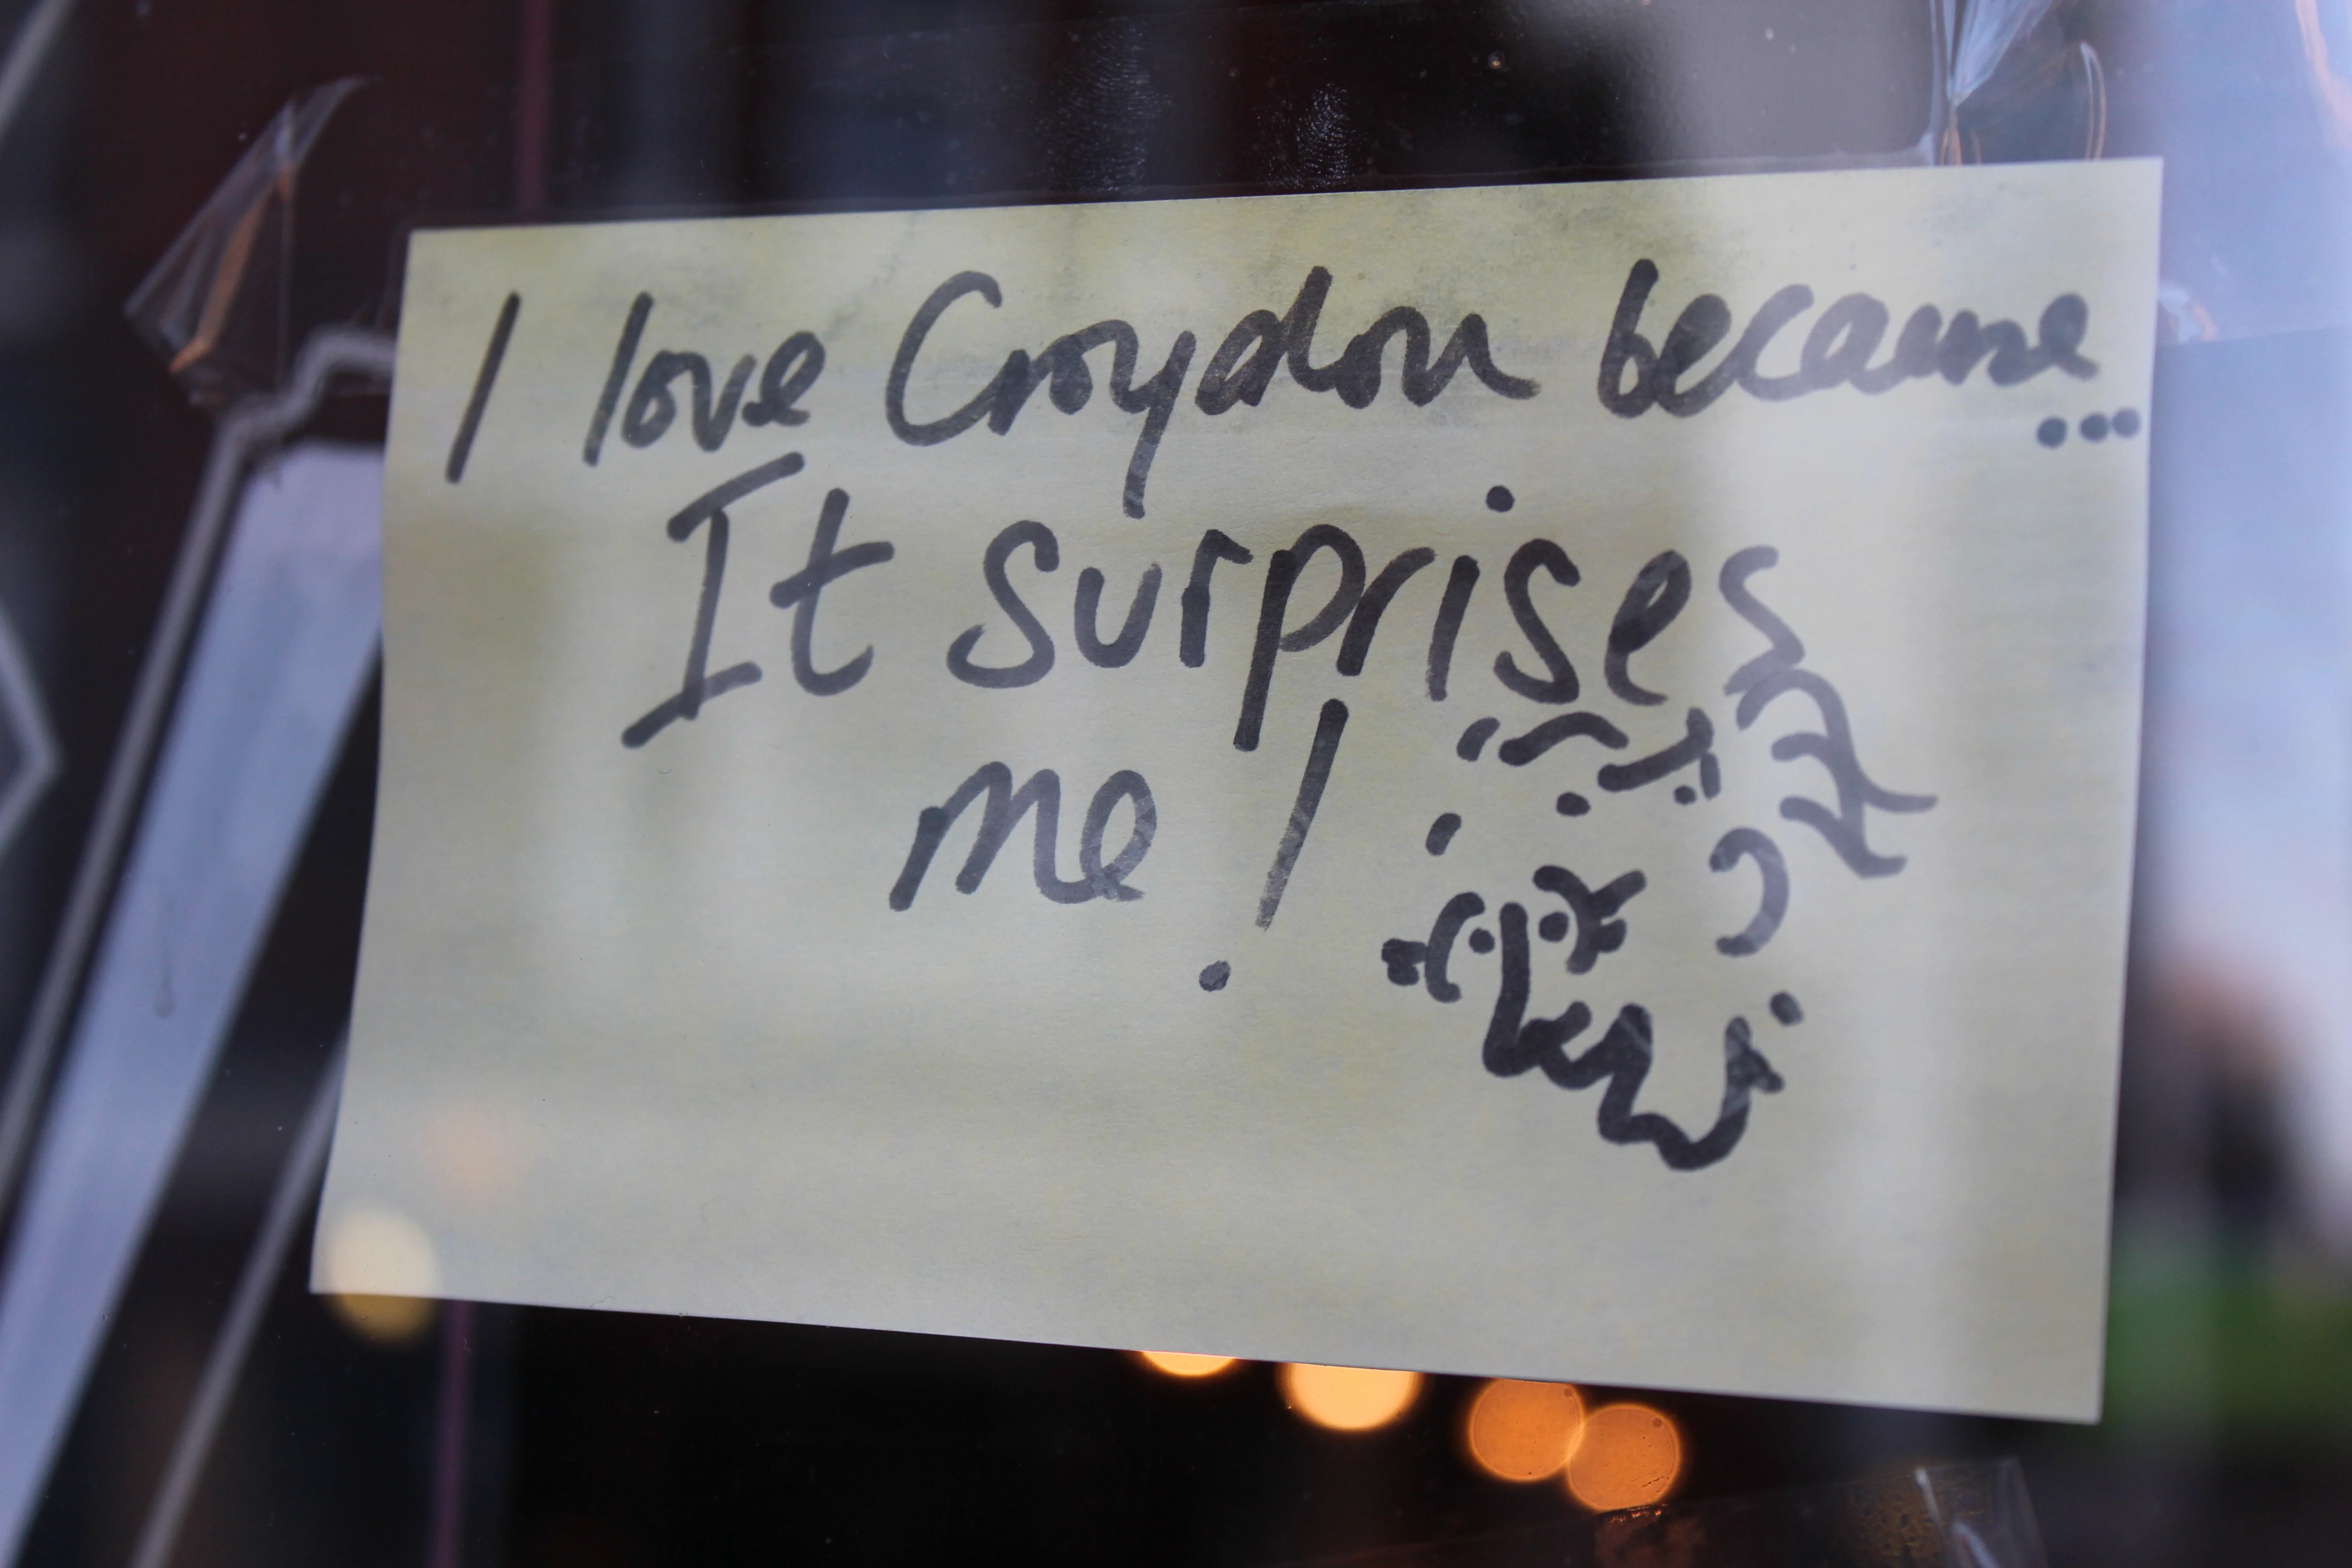 I love Croydon because
...
It surprises
me!